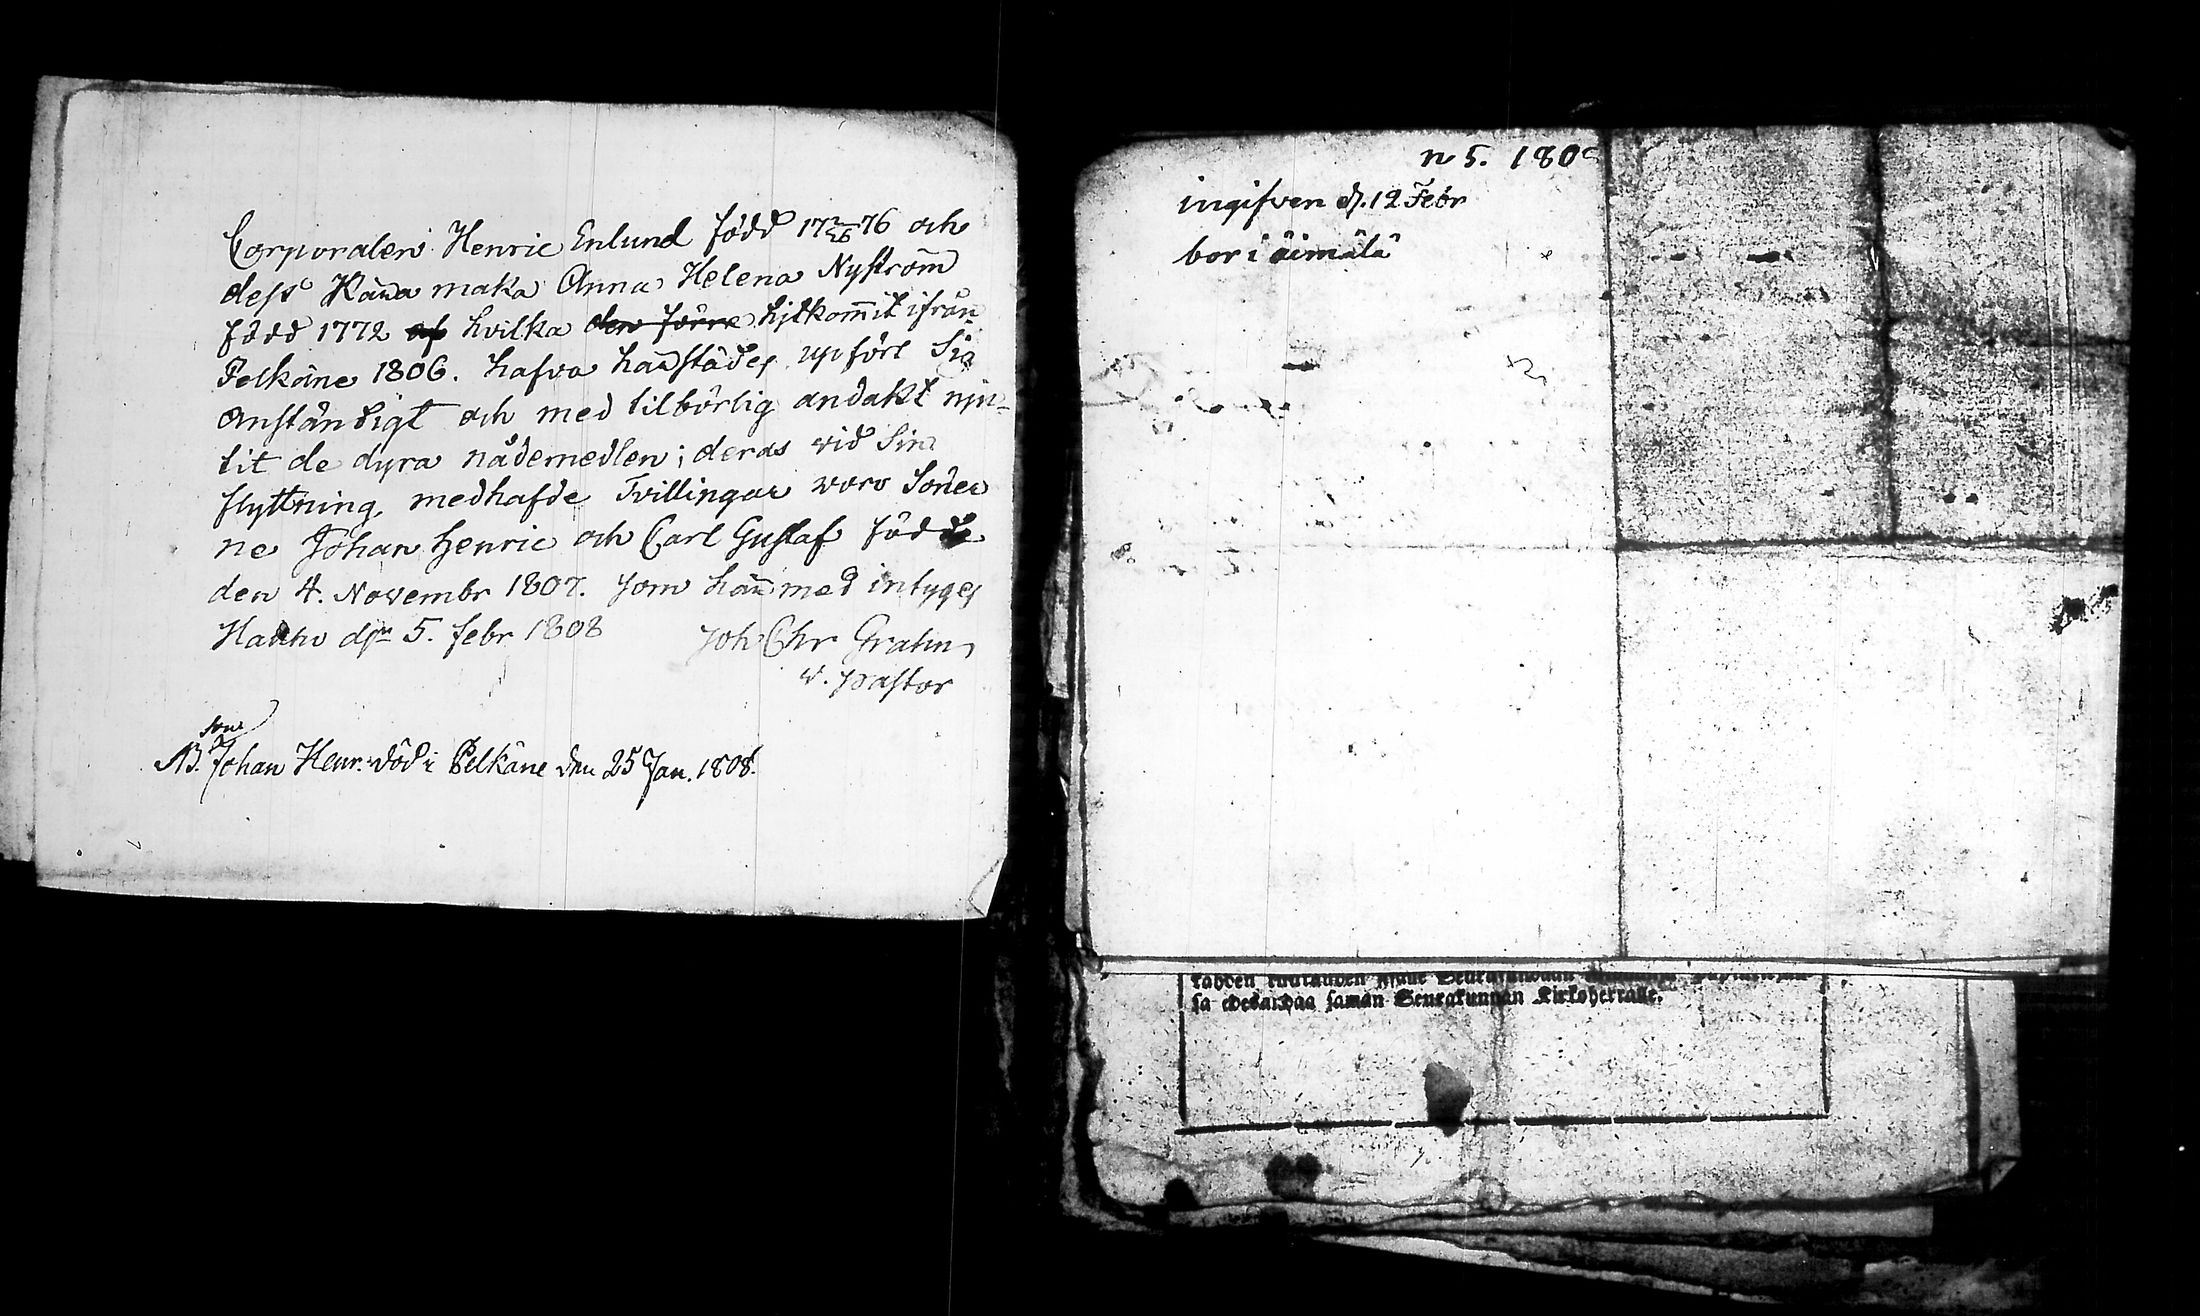 Corporalen Henric Enlund född 17 2/26 76 och
dess Kära maka Anna Helena Nyström
född 1772 af hvilka den förre hjtkom̄it ifrån
Pelkäne 1806. hafva härstädes upfört Sig
anständigt och med tilbörlig andakt nju-
tit de dyra nådemedlen; deras vid Sin
flyttning, medhafde Tvillingar voro Söner
ne Johan Henric och Carl Gustaf födde
den 4. Novembr 1807. som härmed intyges
Hauho djn 5. febr 1808
Joh Chr Grahn
v. pastor
son
NB. Johan Henr. död i Pelkäne den 25 Jan. 1808.
n 5. 180
ingifven d. 12 Febr
bor i äimälä
sa edesandaa saman Seurakunnan Kirkoherralle.